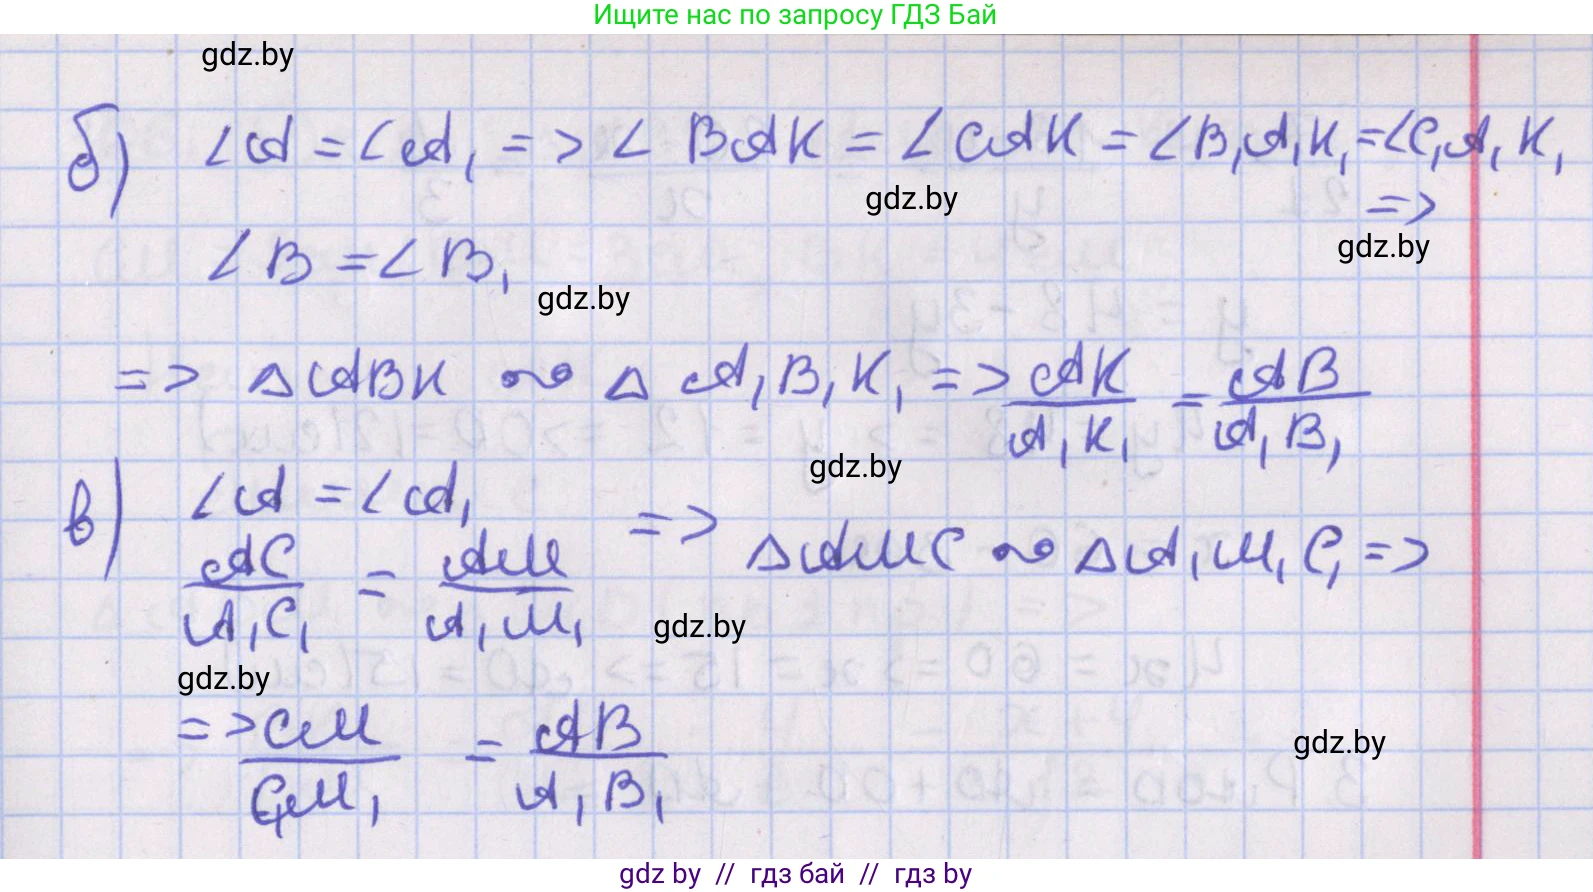 Ищите нас по запросу ГДЗ Бай
gdz.by
б) ∠A = ∠A₁ => ∠BAK = ∠CAK = ∠B₁A₁K₁ = ∠C₁A₁K₁
gdz.by
=>
gdz.by
∠B = ∠B₁
gdz.by
=> △ABK ∾ △A₁B₁K₁ => AK/A₁K₁ = AB/A₁B₁
gdz.by
в) ∠A = ∠A₁
AC/A₁C₁ = AM/A₁M₁ => △AMC ∾ △A₁M₁C₁ =>
gdz.by
gdz.by
=> CM/C₁M₁ = AB/A₁B₁
gdz.by
gdz by // гдз бай // гдз by